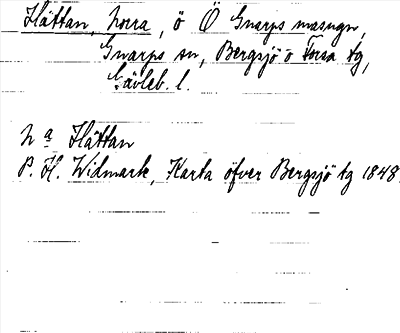 Hättan, norra, ö Ö Gnarps masugn,
Gnarps sn, Bergsjö o Forsa tg,
Gävleb. l.
Na Hättan
P. H. Widmark, Karta öfver Bergsjö tg 1848.